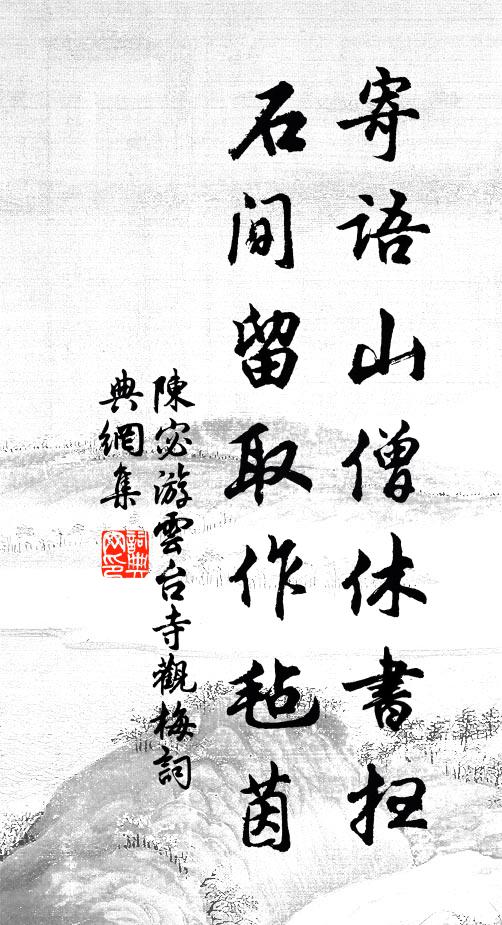 寄語山僧休盡掃
石間留取作毡茵
陳宓游雲台寺觀梅詞
典網集
詞典
网印